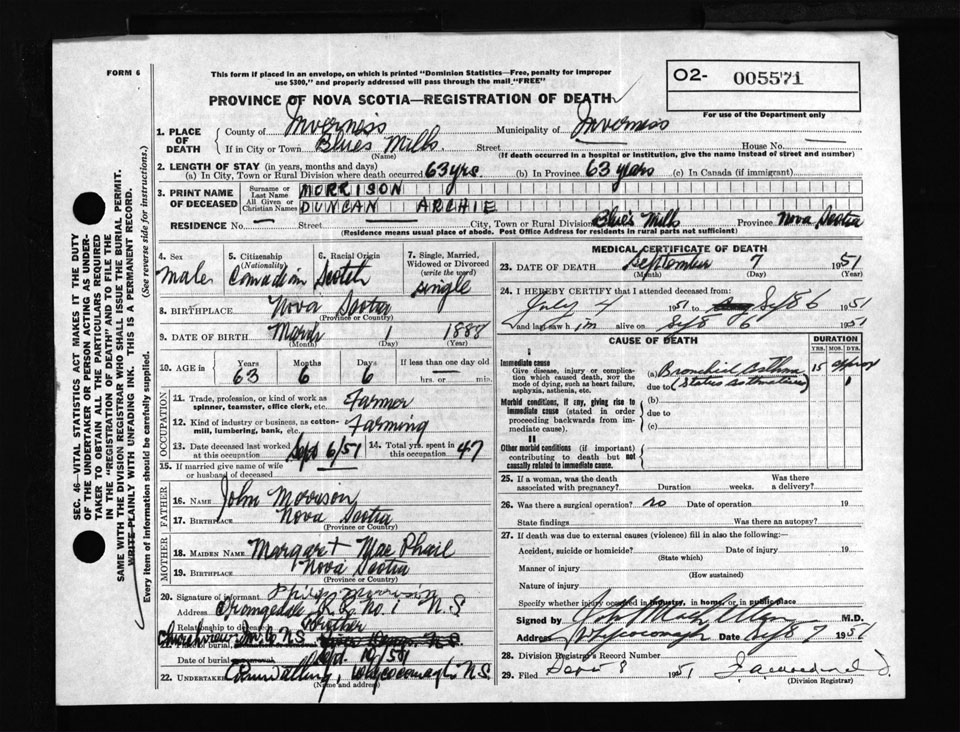 FORM 6
This form if placed in an envelope, on which is printed "Dominion Statistics—Free, penalty for improper
use $300," and properly addressed will pass through the mail "FREE"
O2- 005571
For use of the Department only
PROVINCE OF NOVA SCOTIA—REGISTRATION OF DEATH
1. PLACE OF DEATH
County of Inverness Municipality of Inverness
If in City or Town Blues Mills Street House No. —
(Name) (If death occurred in a hospital or institution, give the name instead of street and number)
2. LENGTH OF STAY (in years, months and days)
(a) In City, Town or Rural Division where death occurred 63 yrs (b) In Province 63 years (c) In Canada (if immigrant)
3. PRINT NAME OF DECEASED
Surname or Last Name MORRISON
All Given or Christian Names DUNCAN ARCHIE
RESIDENCE No. — Street — City, Town or Rural Division Blue's Mills Province Nova Scotia
(Residence means usual place of abode. Post Office Address for residents in rural parts not sufficient)
4. Sex
male
5. Citizenship (Nationality)
Canadian
6. Racial Origin
Scotch
7. Single, Married, Widowed or Divorced (write the word)
single
8. BIRTHPLACE Nova Scotia
(Province or Country)
9. DATE OF BIRTH March 1 1888
(Month) (Day) (Year)
10. AGE in Years Months Days If less than one day old
63 6 6 hrs. or min.
OCCUPATION
11. Trade, profession, or kind of work as spinner, teamster, office clerk, etc. Farmer
12. Kind of industry or business, as cotton-mill, lumbering, bank, etc. Farming
13. Date deceased last worked at this occupation Sept 6/51
14. Total yrs. spent in this occupation 47
15. If married give name of wife or husband of deceased
FATHER
16. NAME John Morrison
17. BIRTHPLACE Nova Scotia
(Province or Country)
MOTHER
18. MAIDEN NAME Margaret MacPhail
19. BIRTHPLACE Nova Scotia
(Province or Country)
20. Signature of informant Morrison
Address Orangedale R.R. No. 1 N.S.
Relationship to deceased Brother
Place of burial, N.S.
Date of burial Sept. 10/51
22. UNDERTAKER Whycocomagh N.S.
(Name and address)
MEDICAL CERTIFICATE OF DEATH
23. DATE OF DEATH September 7 1951
(Month) (Day) (Year)
24. I HEREBY CERTIFY that I attended deceased from
July 4 1951 to Sept 6 1951
and last saw him alive on Sept 6 1951
CAUSE OF DEATH
DURATION
YRS. MOS. DYS.
I
Immediate cause
Give disease, injury or complication which caused death, NOT the mode of dying, such as heart failure, asphyxia, asthenia, etc.
(a) Bronchial Asthma 15 approx
due to (Status asthmaticus) 1
Morbid conditions, if any, giving rise to immediate cause (stated in order proceeding backwards from immediate cause).
(b)
due to
(c)
II
Other morbid conditions (if important) contributing to death but not causally related to immediate cause.
25. If a woman, was the death associated with pregnancy? Duration weeks. Was there a delivery?
26. Was there a surgical operation? no Date of operation 19
State findings Was there an autopsy?
27. If death was due to external causes (violence) fill in also the following:
Accident, suicide or homicide? Date of injury 19
(State which)
Manner of injury
(How sustained)
Nature of injury
Specify whether injury occurred in industry, in home, or in public place
Signed by M.D.
Address Whycocomagh Date Sept 7 1951
28. Division Registrar's Record Number
29. Filed Sept 8 1951
(Division Registrar)
SEC. 46—VITAL STATISTICS ACT MAKES IT THE DUTY
OF THE UNDERTAKER OR PERSON ACTING AS UNDER-
TAKER TO OBTAIN ALL THE PARTICULARS REQUIRED
IN THE "REGISTRATION OF DEATH" AND TO FILE THE
SAME WITH THE DIVISION REGISTRAR WHO SHALL ISSUE THE BURIAL PERMIT.
WRITE PLAINLY WITH UNFADING INK. THIS IS A PERMANENT RECORD.
Every item of information should be carefully supplied. (See reverse side for instructions.)